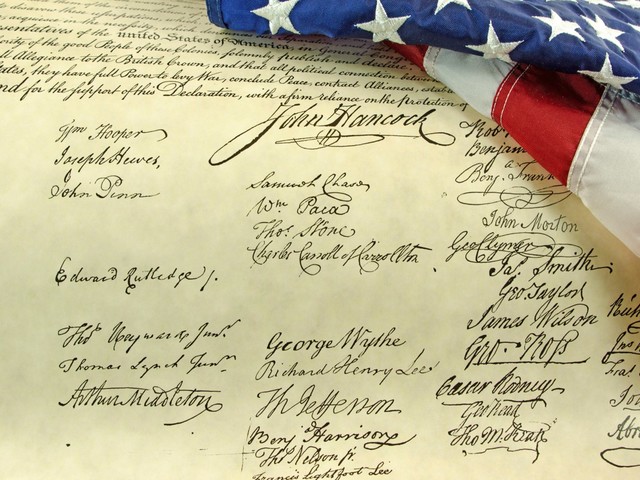 united States of America, in General
of the good People of these Colonies, solemnly publish and declare
Allegiance to the British Crown, and that all political connection between
they have full Power to levy War, conclude Peace, contract Alliances, estab
nd for the support of this Declaration, with a firm reliance on the protection of
John Hancock
Wm Hooper
Joseph Hewes,
John Penn
Edward Rutledge /.
Thos Heyward Junr.
Thomas Lynch Junr.
Arthur Middleton
Samuel Chase
Wm. Paca
Thos. Stone
Charles Carroll of Carrollton
George Wythe
Richard Henry Lee
Th Jefferson
Benj. Harrison
Thos Nelson jr.
Francis Lightfoot Lee
Rob
Benjam
Benj. Frank
John Morton
Geo Clymer
Jas. Smith
Geo. Taylor
James Wilson
Geo. Ross
Caesar Rodney
Geo Read
Tho M:Kean
Abr